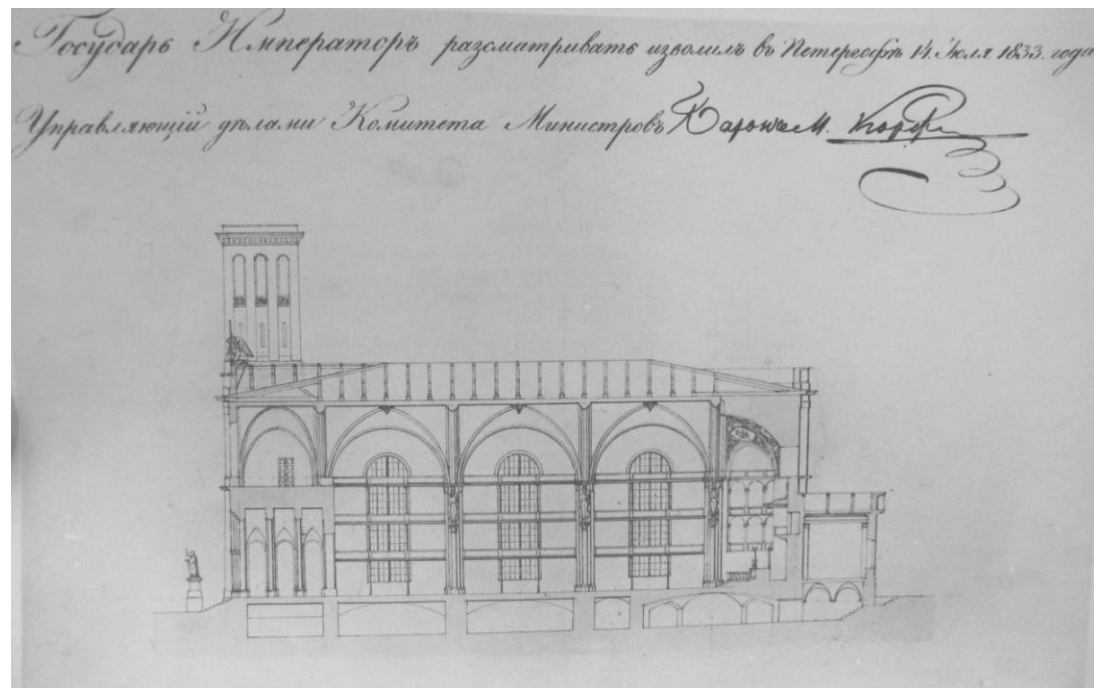 Государь Императоръ разсматривать изволилъ въ Петергофѣ 14. Июля 1833. года
Управляющій дѣлами Комитета Министровъ Баронъ М. Корфъ